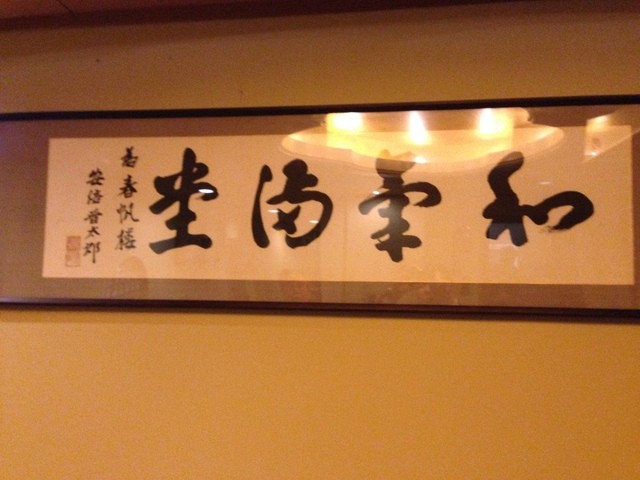 和氣満堂
為春帆楼
安倍晋太郎